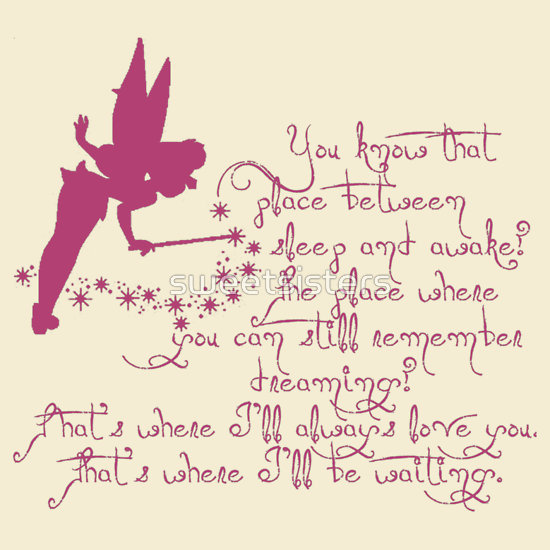 You know that
place between
sleep and awake?
sweetsisters
The place where
you can still remember
dreaming?
That's where I'll always love you.
That's where I'll be waiting.